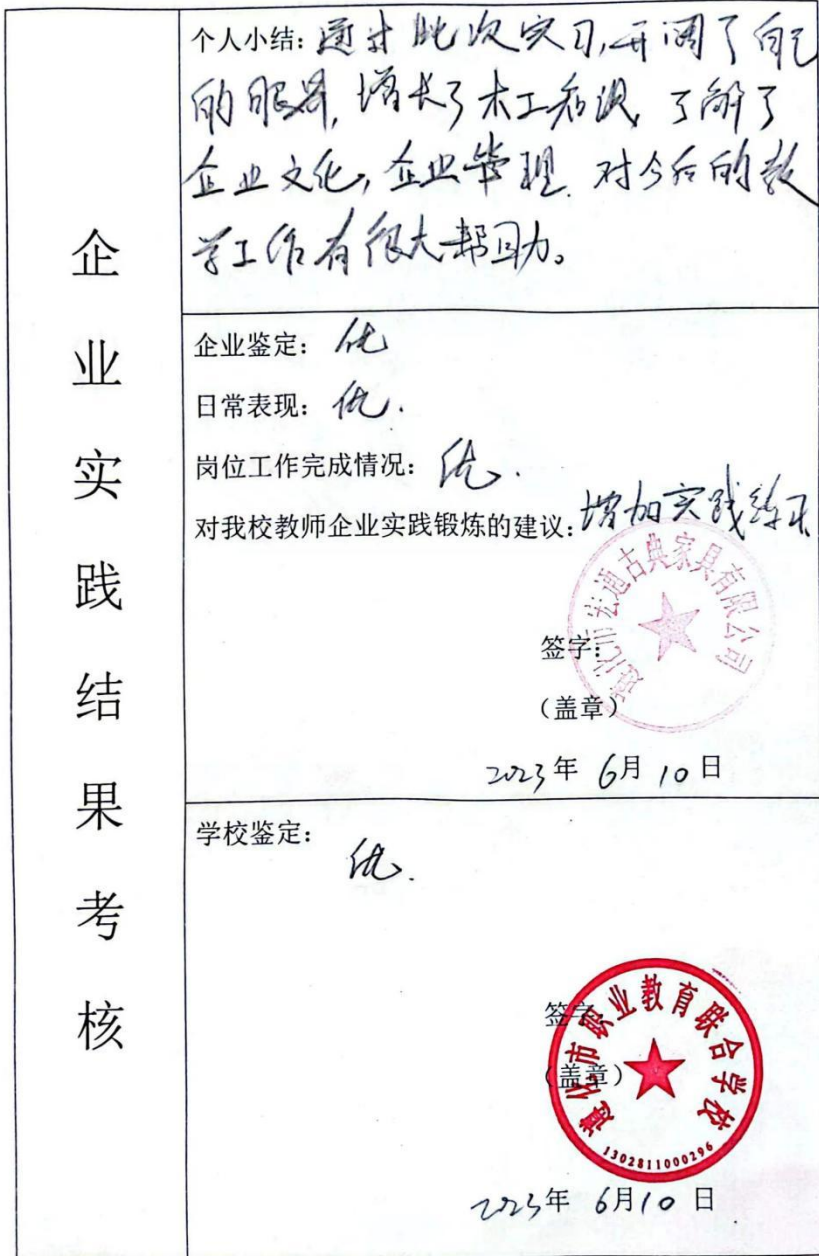 企业实践结果考核
个人小结：通过此次实习，开阔了自己
的眼界，增长了木工知识，了解了
企业文化，企业管理．对今后的教
学工作有很大帮助。
企业鉴定：优
日常表现：优．
岗位工作完成情况：优．
对我校教师企业实践锻炼的建议：增加实践练习
遵化市宏通古典家具有限公司
签字：
（盖章）
2023年 6月 10日
学校鉴定：
优．
签字
（盖章）
遵化市职业教育联合学校
1302811000296
2023年 6月10日